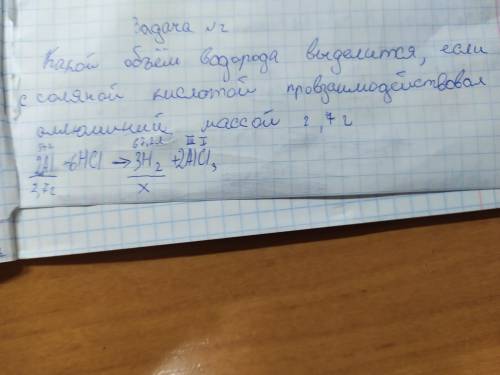 Задача №2
Какой объём водорода выделится, если
с соляной кислотой провзаимодействовал
аллюминий массой 2,7г
67,2л III I
2Al+6HCl → 3H₂ +2AlCl₃
2,7г x